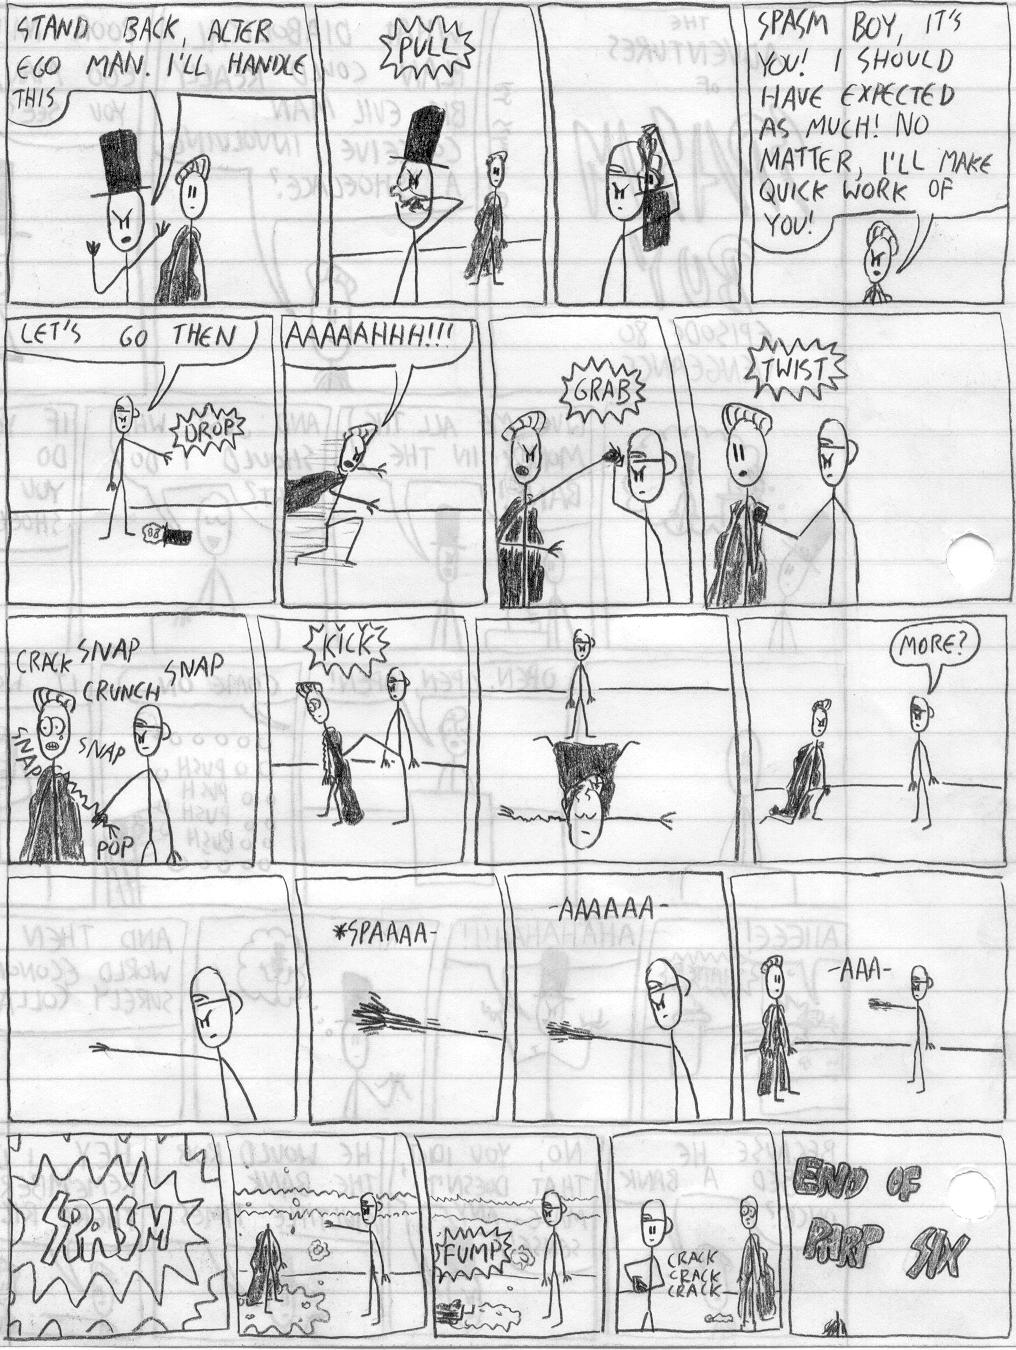 STAND BACK, ALTER
EGO MAN. I'LL HANDLE
THIS
PULL
SPASM BOY, IT'S
YOU! I SHOULD
HAVE EXPECTED
AS MUCH! NO
MATTER, I'LL MAKE
QUICK WORK OF
YOU!
LET'S GO THEN
DROP
AAAAAHHH!!!
GRAB
TWIST
CRACK SNAP
SNAP
CRUNCH
SNAP
SNAP
POP
KICK
MORE?
*SPAAAA-
-AAAAAA-
-AAA-
SPASM
FUMP
CRACK
CRACK
CRACK
END OF
PART SIX